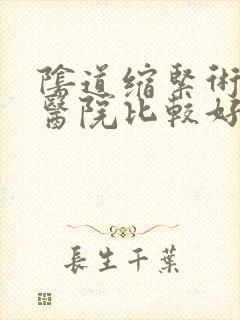 陰道缩緊術
醫院比較好
長生千葉